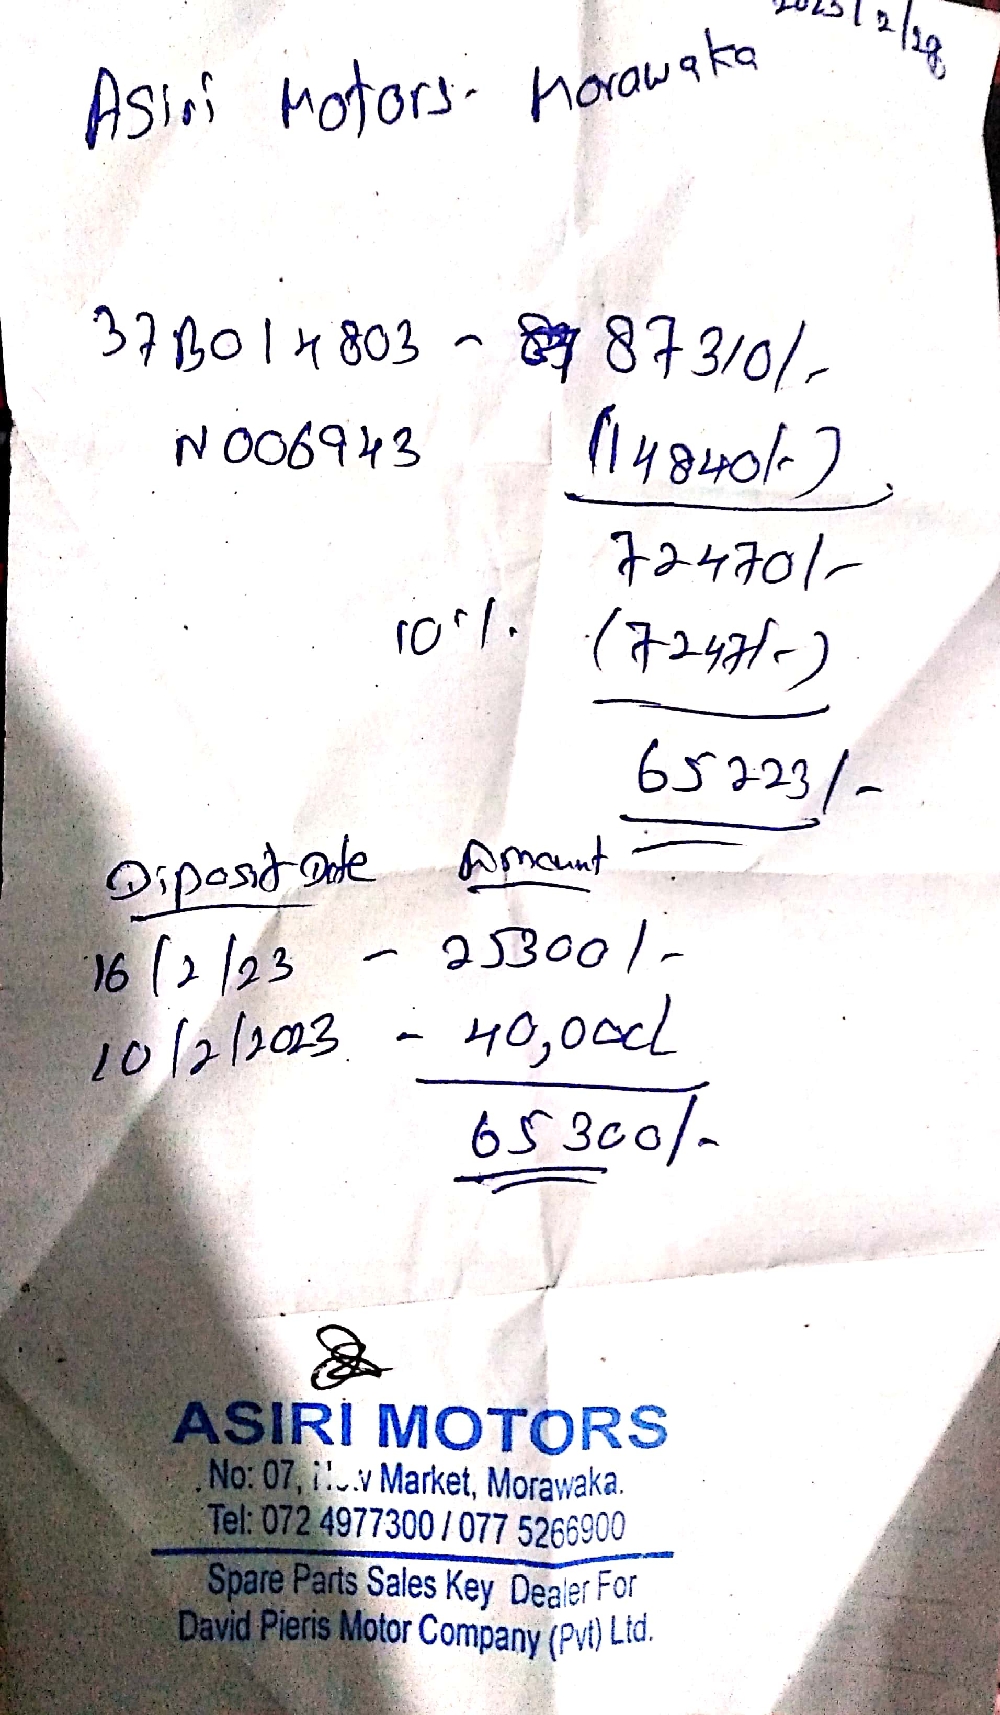 2023/2/28
Asiri Motors- Morawaka
37B014803 - 87310/-
N006943 (14840/-)
72470/-
10% (7247/-)
65223/-
Diposit Date Amount
16/2/23 - 25300/-
10/2/2023 - 40,000/
65300/-
ASIRI MOTORS
No: 07, New Market, Morawaka.
Tel: 072 4977300 / 077 5266900
Spare Parts Sales Key Dealer For
David Pieris Motor Company (Pvt) Ltd.